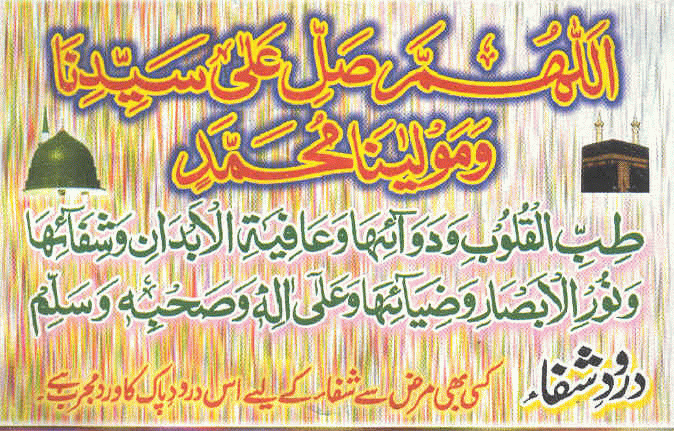 اَللّٰهُمَّ صَلِّ عَلٰی سَیِّدِنَا
وَمَوْلٰینَا مُحَمَّدٍ
طِبِّ الْقُلُوْبِ وَدَوَآئِهَا وَعَافِیَةِ الْاَبْدَانِ وَشِفَآئِهَا
وَنُوْرِ الْاَبْصَارِ وَضِیَآئِهَا وَعَلٰٓی اٰلِهٖ وَصَحْبِهٖ وَسَلِّمْ
درودِ شفاء
کسی بھی مرض سے شفاء کے لیے اس درودِ پاک کا ورد مجرب ہے۔